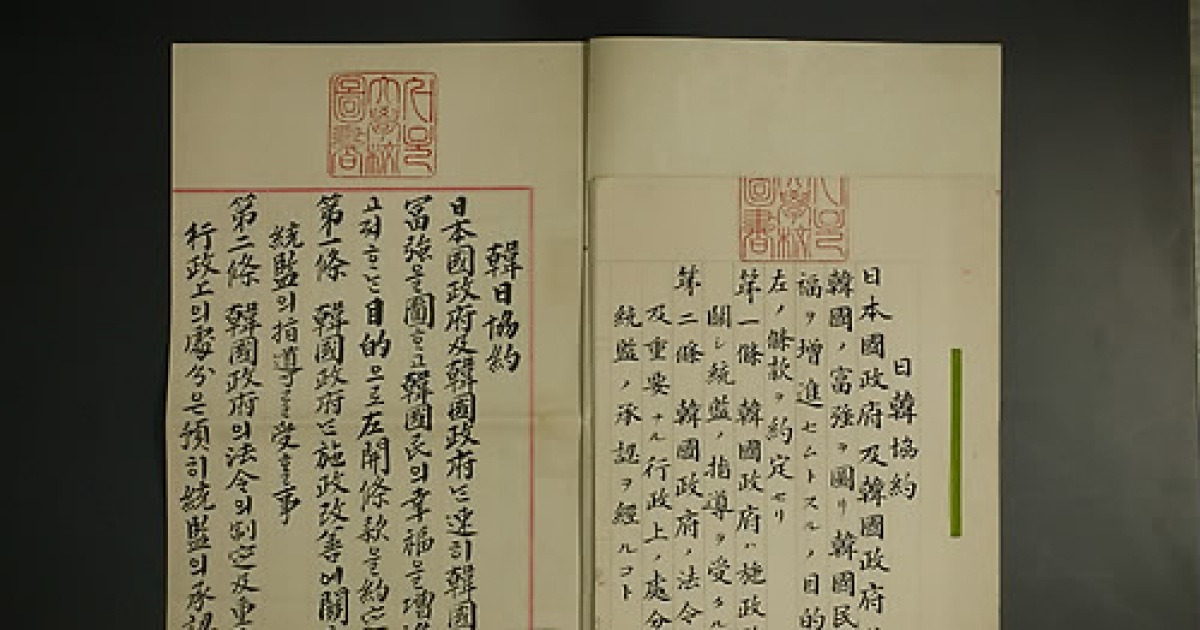 日韓協約
日本國政府及韓國政府
韓國ノ富強ヲ圖リ韓國民
福ヲ增進セムトスルノ目的
左ノ條款ヲ約定セリ
第一條 韓國政府ハ施政
關シ統監ノ指導ヲ受クル
第二條 韓國政府ノ法令
及重要ナル行政上ノ處分
統監ノ承認ヲ經ルコト
서울
大學校
圖書
韓日協約
日本國政府及韓國政府는速히韓國
富强을圖ᄒᆞ고韓國民의幸福을增
고져ᄒᆞᄂᆞᆫ目的으로左開條款을約定
第一條 韓國政府는施政改善에關
統監의指導를受ᄒᆞᆯ事
第二條 韓國政府의法令의制定及重
行政上의處分은預히統監의承認